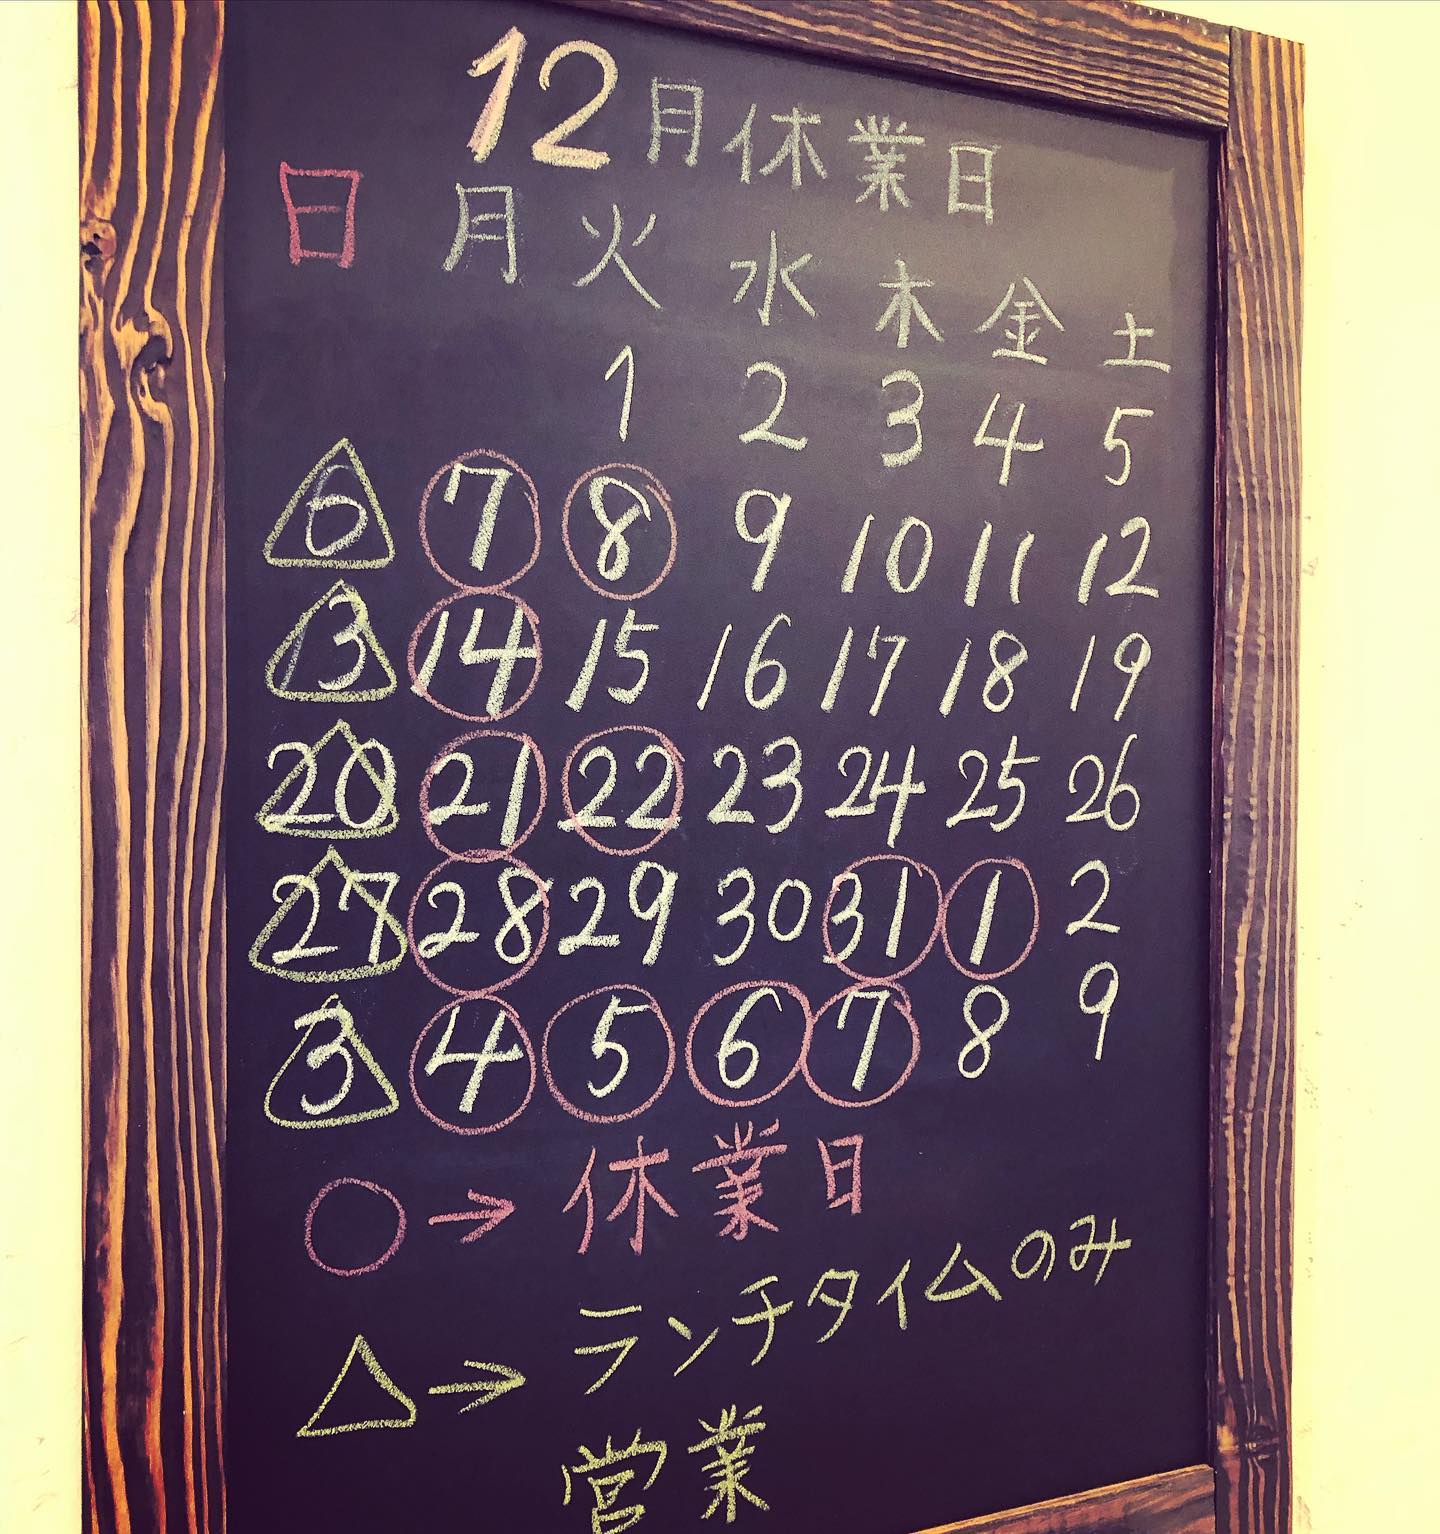 12月休業日
日 月 火 水 木 金 土
1 2 3 4 5
6 7 8 9 10 11 12
13 14 15 16 17 18 19
20 21 22 23 24 25 26
27 28 29 30 31 1 2
3 4 5 6 7 8 9
○→休業日
△→ランチタイムのみ
営業